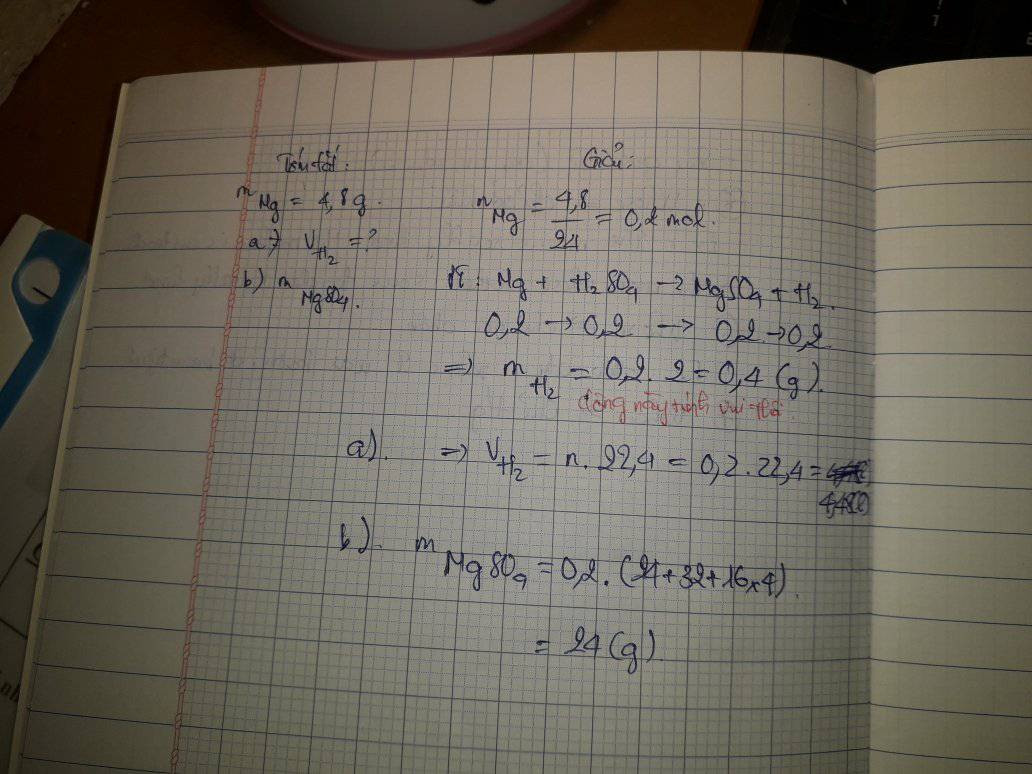 Tóm tắt:
m Mg = 4,8 g.
a) V H₂ = ?
b) m MgSO₄.
Giải:
n Mg = 4,8/24 = 0,2 mol.
Pt: Mg + H₂SO₄ → MgSO₄ + H₂.
0,2 → 0,2 → 0,2 → 0,2
=> m H₂ = 0,2 . 2 = 0,4 (g).
dòng này tính vui thôi
a). => V H₂ = n . 22,4 = 0,2 . 22,4 =
4,48(l)
b). m MgSO₄ = 0,2 . (24+32+16x4).
= 24 (g)